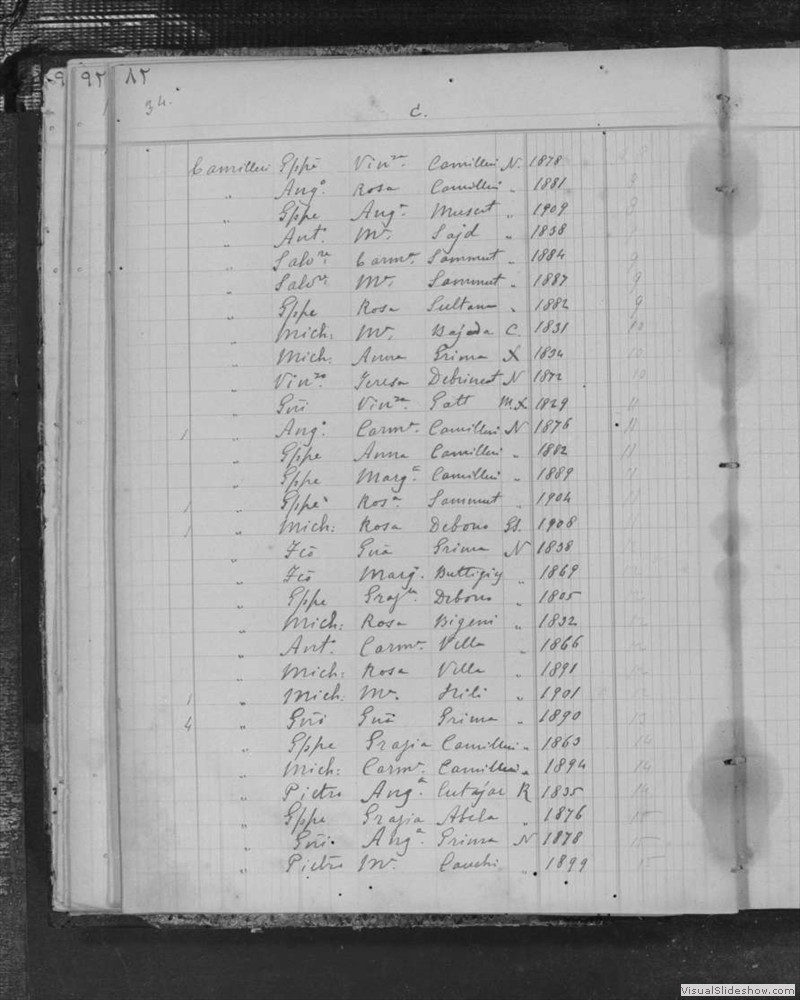 9 95 85
34.
C.
Camilleri Gppe Vinza. Camilleri N. 1878
„ Ango. Rosa Camilleri „ 1881
„ Gppe Anga Muscat „ 1909
„ Anto. Ma. Sajd „ 1838
„ Salvre. Carma. Sammut „ 1884 9
„ Salvre. Ma. Sammut „ 1887 9
„ Gppe Rosa Sultana „ 1882 9
„ Mich: Ma. Bajada C. 1831 10
„ Mich: Anna Grima X 1834 10
„ Vinzo. Teresa Debrincat N 1872 10
„ Gni Vinza. Gatt MX 1829 11
1 „ Ango. Carma. Camilleri N 1876 11
„ Gppe Anna Camilleri „ 1882 11
„ Gppe Marga Camilleri „ 1889 11
1 „ Gppe Rosa Sammut „ 1904 11
1 „ Mich: Rosa Debono Gh. 1908
„ Fco Gna Grima N 1838
„ Fco Marga. Buttigieg „ 1869
„ Gppe Graza Debono „ 1805
„ Mich: Rosa Bigeni „ 1832
„ Anto. Carma. Vella „ 1866
„ Mich: Rosa Vella „ 1891
1 „ Mich: Ma. Hili „ 1901
4 „ Gni Gna Grima „ 1890 13
„ Gppe Grazia Camilleri „ 1863 14
„ Mich: Carma. Camilleri „ 1894 14
„ Pietro Anga Cutajar R 1835 14
„ Gppe Grazia Abela „ 1876 15
„ Gni Anga Grima N 1878 15
„ Pietro Ma. Cauchi „ 1899 15
VisualSlideshow.com